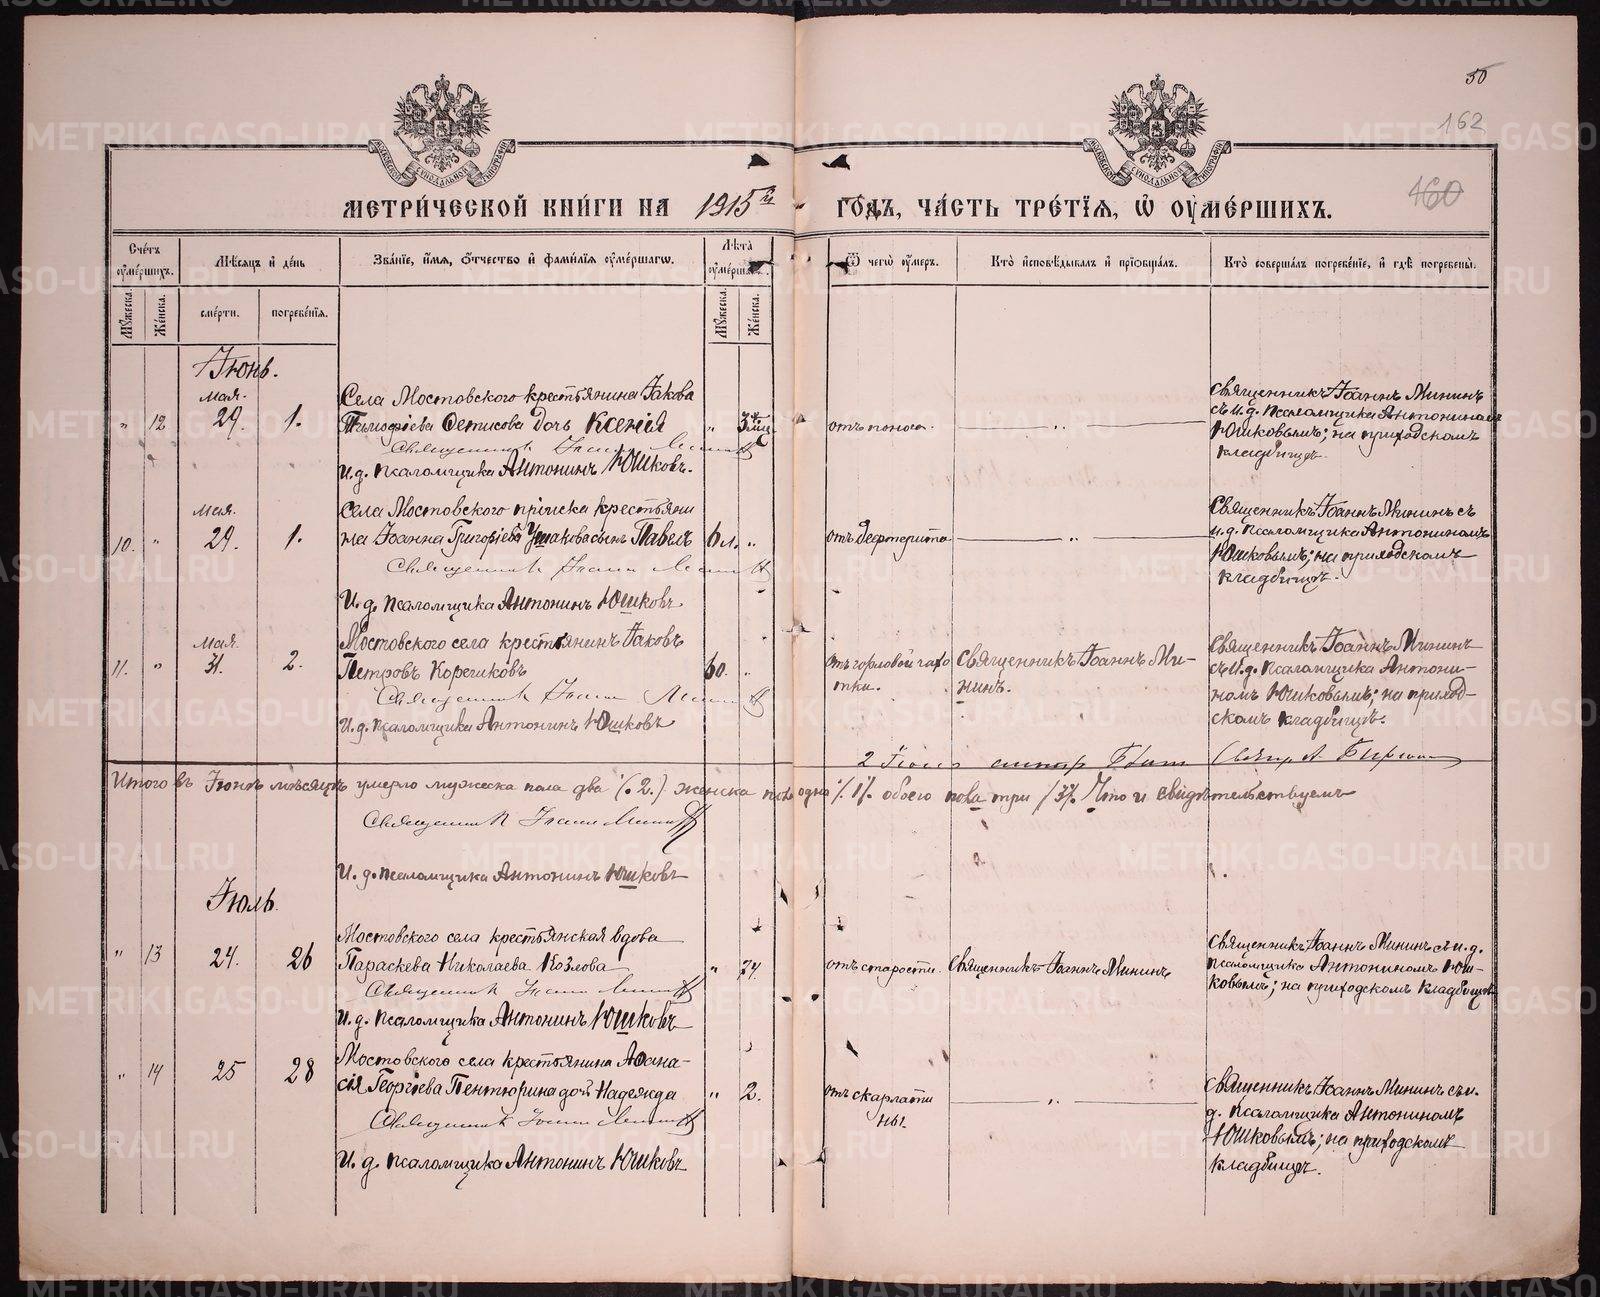 50
162
160
МЕТРИ́ЧЕСКОЙ КНИ́ГИ НА 1915й ГО́ДЪ, ЧА́СТЬ ТРЕ́ТІѦ, Ѡ҆ ОУ҆МЕ́РШИХЪ.
Счетъ оумершихъ.
Мужеска.
Женска.
Мѣсяцъ и день
смерти.
погребенія.
Званіе, имя, отчество и фамилія оумершагѡ.
Лѣта оумершаго.
Мужеска.
Женска.
Ѿ чегѡ оумеръ.
Кто исповѣдывалъ и пріобщалъ.
Кто совершалъ погребеніе, и гдѣ погребены.
Іюнь.
„ 12 мая. 29. 1.
Села Мостовского крестьянина Іакова
Тимофіева дочь Ксенія
Священникъ Іоаннъ Мининъ
И. д. псаломщика Антонинъ Юшковъ.
„ 3 мѣс.
отъ поноса.
„
Священникъ Іоаннъ Мининъ
съ и.д. псаломщика Антониномъ
Юшковымъ; на приходскомъ
кладбищѣ.
10. „ мая. 29. 1.
Села Мостовского крестьяни
на Іоанна Григоріева Ушакова сынъ Павелъ
Священникъ Іоаннъ Мининъ
И. д. псаломщика Антонинъ Юшковъ
6 л. „
отъ дефтерита
„
Священникъ Іоаннъ Мининъ съ
и.д. псаломщика Антониномъ
Юшковымъ; на приходскомъ
кладбищѣ.
11. „ мая. 31. 2.
Мостовского села крестьянинъ Іаковъ
Петровъ Корешковъ
Священникъ Іоаннъ Мининъ
И. д. псаломщика Антонинъ Юшковъ
60. „
отъ горловой чахо
тки.
Священникъ Іоаннъ Ми-
нинъ.
Священникъ Іоаннъ Мининъ
съ и.д. псаломщика Антони-
номъ Юшковымъ; на приход-
скомъ кладбищѣ.
2 Іюня
Итого въ Іюнѣ мѣсяцѣ умерло мужеска пола два (2.) женска пола одна /1/. обоего пола три /3/. Что и свидѣтельствуемъ
Священникъ Іоаннъ Мининъ
И. д. псаломщика Антонинъ Юшковъ
Іюль.
„ 13 24. 26
Мостовского села крестьянская вдова
Параскева Николаева Козлова
Священникъ Іоаннъ Мининъ
И. д. псаломщика Антонинъ Юшковъ
„ 74.
отъ старости.
Священникъ Іоаннъ Мининъ
Священникъ Іоаннъ Мининъ съ и.д.
псаломщика Антониномъ Юш-
ковымъ; на приходскомъ кладбищѣ
„ 14 25 28
Мостовского села крестьянина Афана-
сія Георгіева Пентюрина дочь Надежда
Священникъ Іоаннъ Мининъ
И. д. псаломщика Антонинъ Юшковъ
„ 2.
отъ скарлати
ны.
„
Священникъ Іоаннъ Мининъ съ и.
д. псаломщика Антониномъ
Юшковымъ; на приходскомъ
кладбищѣ.
METRIKI.GASO-URAL.RU